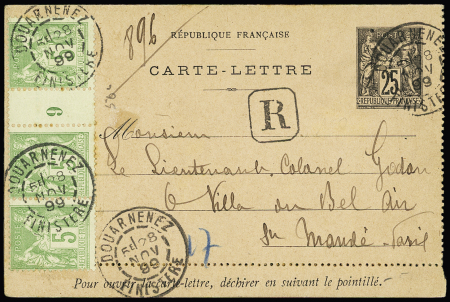 896
RÉPUBLIQUE FRANÇAISE
CARTE-LETTRE
25
RÉPUBLIQUE FRANÇAISE
R
9
5
DOUARNENEZ
28
NOV
99
FINISTÈRE
DOUARNENEZ
28
NOV
99
FINISTÈRE
DOUARNENEZ
28
NOV
99
FINISTÈRE
DOUARNENEZ
28
NOV
99
FINISTÈRE
Monsieur
Le Lieutenant Colonel Godon
6 Villa du Bel Air
St Mandé Paris
17
Pour ouvrir la carte-lettre, déchirer en suivant le pointillé.